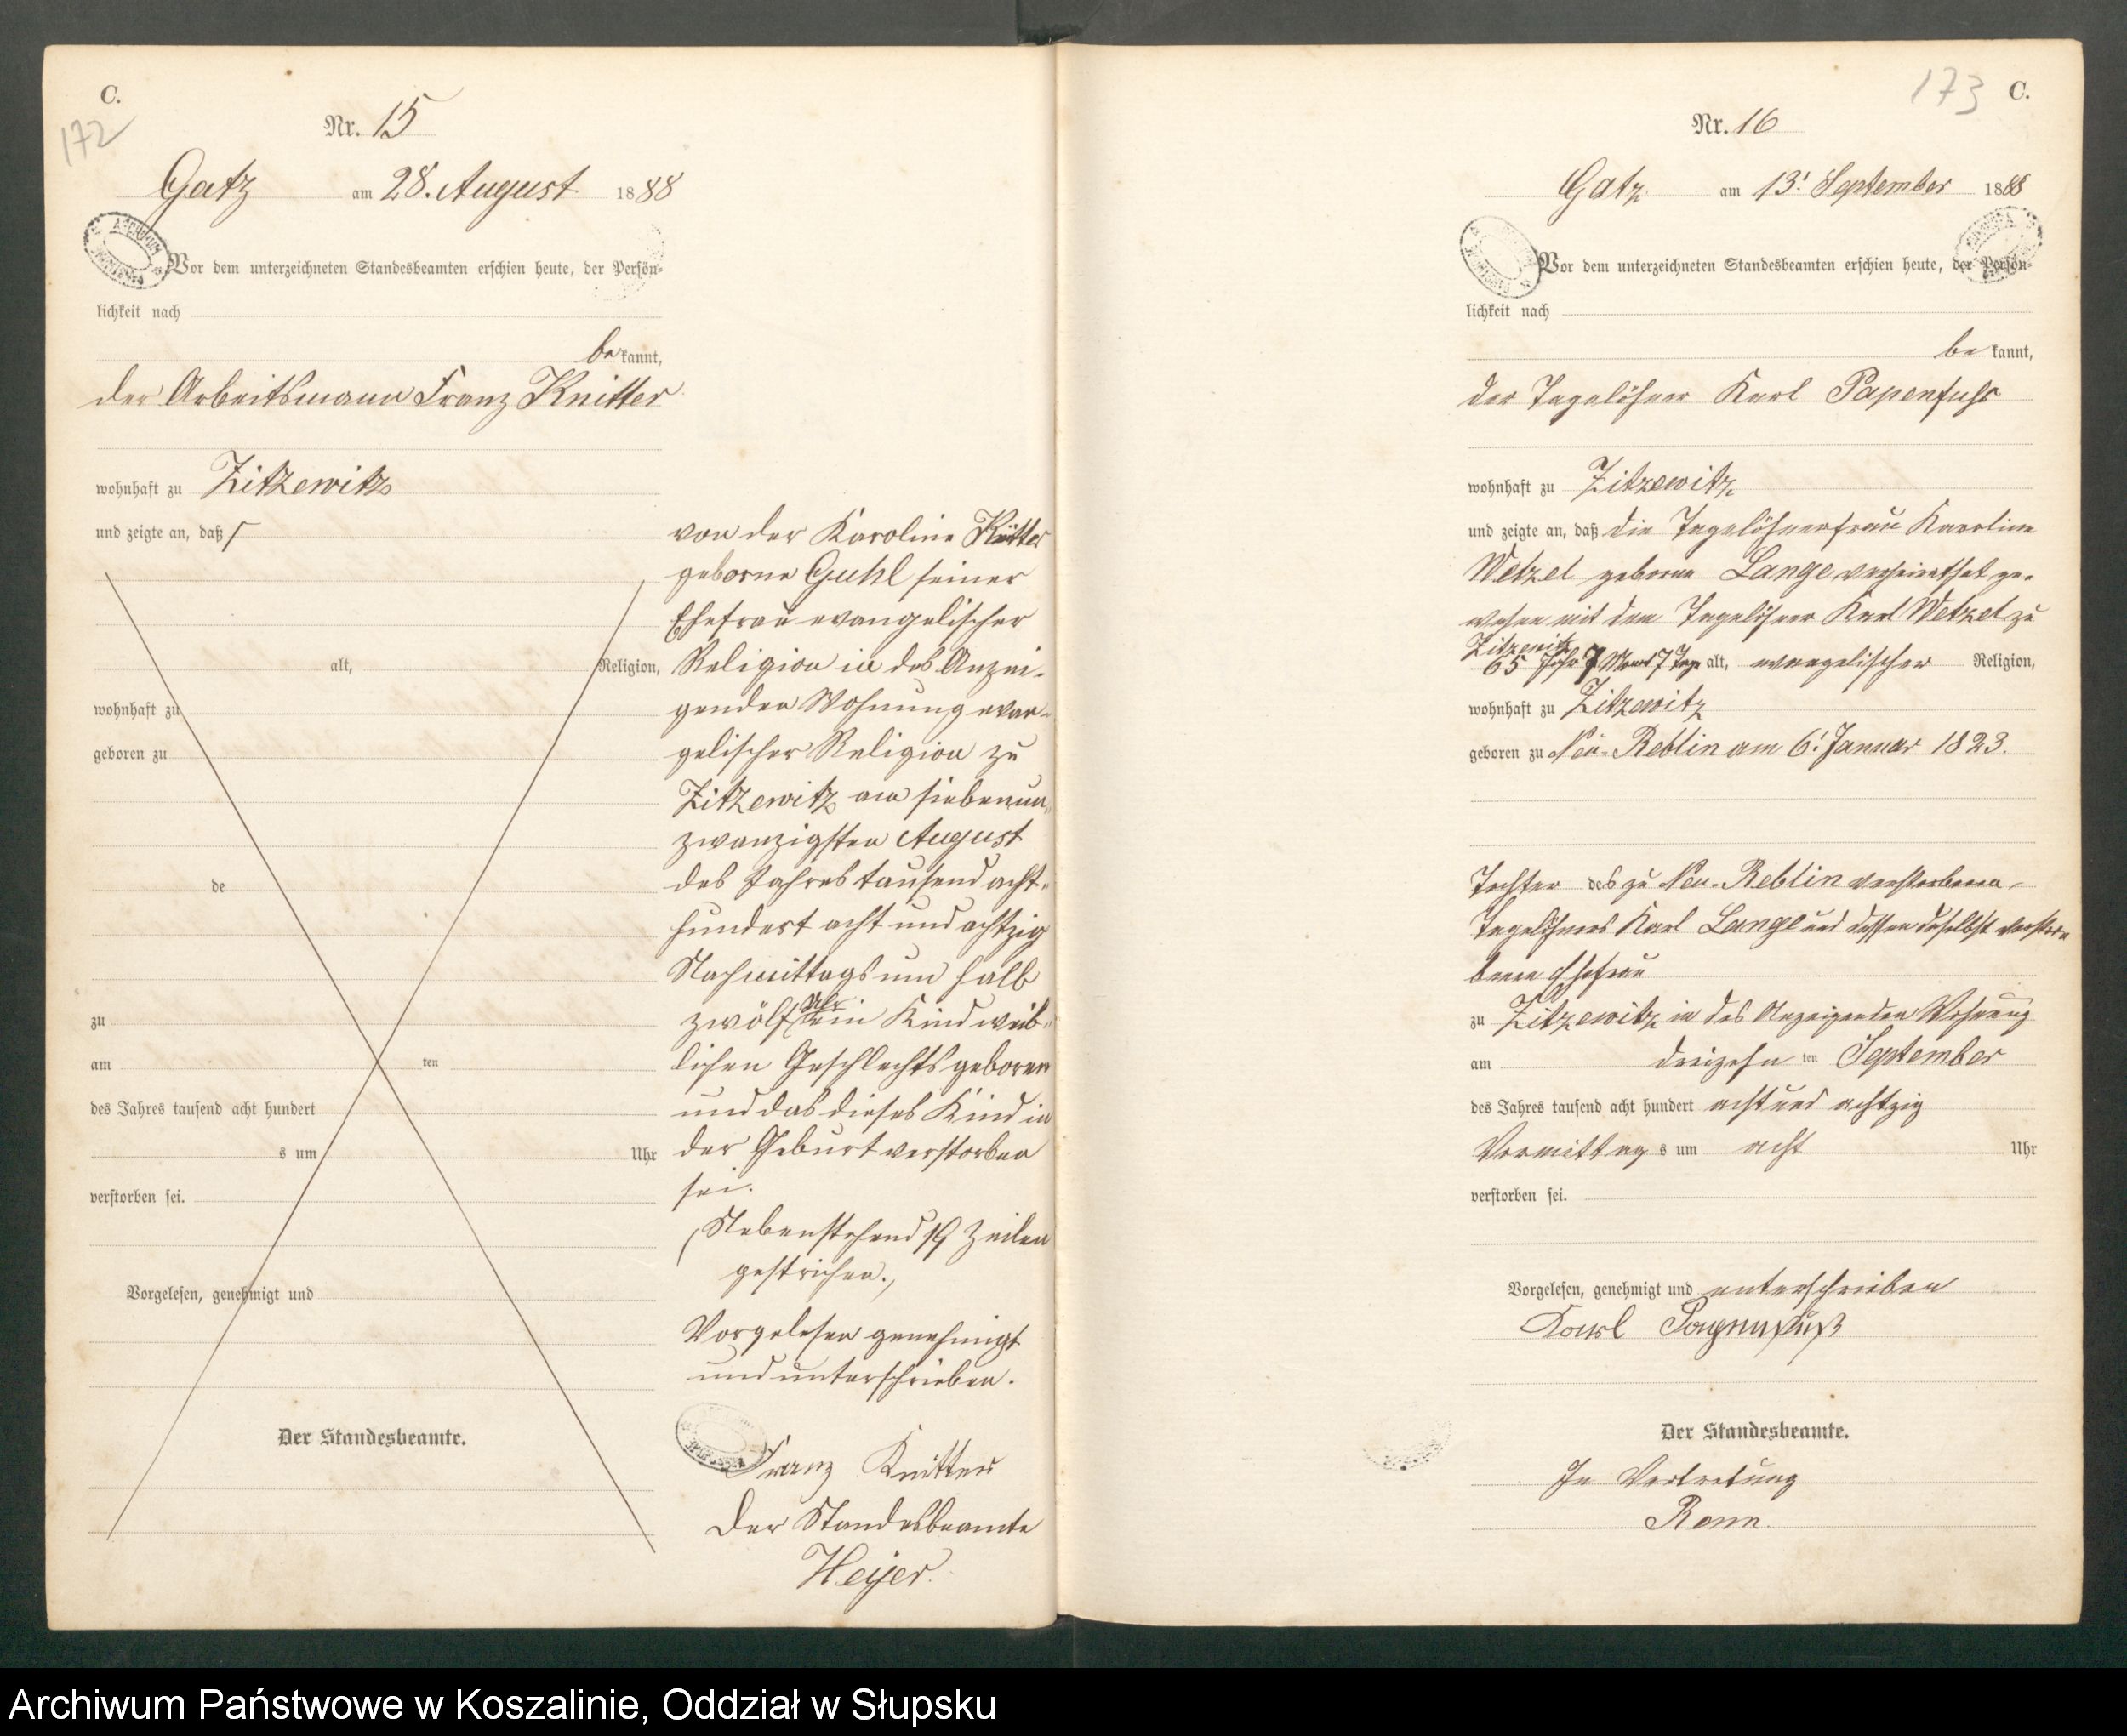 C.
172
Nr. 15
Gatz am 28. August 1888
Vor dem unterzeichneten Standesbeamten erschien heute, der Persön-
lichkeit nach
bekannt,
der Arbeitsmann Franz Knitter
wohnhaft zu Zitzewitz
und zeigte an, daß
alt, Religion,
wohnhaft zu
geboren zu
de
zu
am ten
des Jahres tausend acht hundert
s um Uhr
verstorben sei.
Vorgelesen, genehmigt und
Der Standesbeamte.
von der Karoline Knitter
geborne Guhl seiner
Ehefrau evangelischer
Religion in des Anzei-
genden Wohnung evan-
gelischer Religion zu
Zitzewitz am siebenun
zwanzigsten August
des Jahres tausend acht-
hundert acht und achtzig
Nachmittags um halb
zwölf Uhr ein Kind weib-
lichen Geschlechts geboren
und das dieses Kind in
der Geburt verstorben
sei.
Nebenstehend 19 Zeilen
gestrichen.
Vorgelesen genehmigt
und unterschrieben.
Franz Knitter
Der Standesbeamte
Heyer.
173 C.
Nr. 16
Gatz am 13! September 1888
Vor dem unterzeichneten Standesbeamten erschien heute, der Persön-
lichkeit nach
bekannt,
der Tagelöhner Karl Papenfuhs
wohnhaft zu Zitzewitz
und zeigte an, daß die Tagelöhnerfrau Karoline
Wetzel geborne Lange verheirathet ge-
wesen mit dem Tagelöhner Karl Wetzel zu
Zitzewitz
65 Jahr 7 Monat 7 Tage alt, evangelischer Religion,
wohnhaft zu Zitzewitz
geboren zu Neu-Reblin am 6! Januar 1823.
Tochter des zu Neu-Reblin verstorbenen
Tagelöhners Karl Lange und dessen daselbst verstor-
benen Ehefrau
zu Zitzewitz in des Anzeigenden Wohnung
am dreizehn ten September
des Jahres tausend acht hundert acht und achtzig
Vormittag s um acht Uhr
verstorben sei.
Vorgelesen, genehmigt und unterschrieben
Karl Papenfuß
Der Standesbeamte.
In Vertretung
Ronn.
Archiwum Państwowe w Koszalinie, Oddział w Słupsku